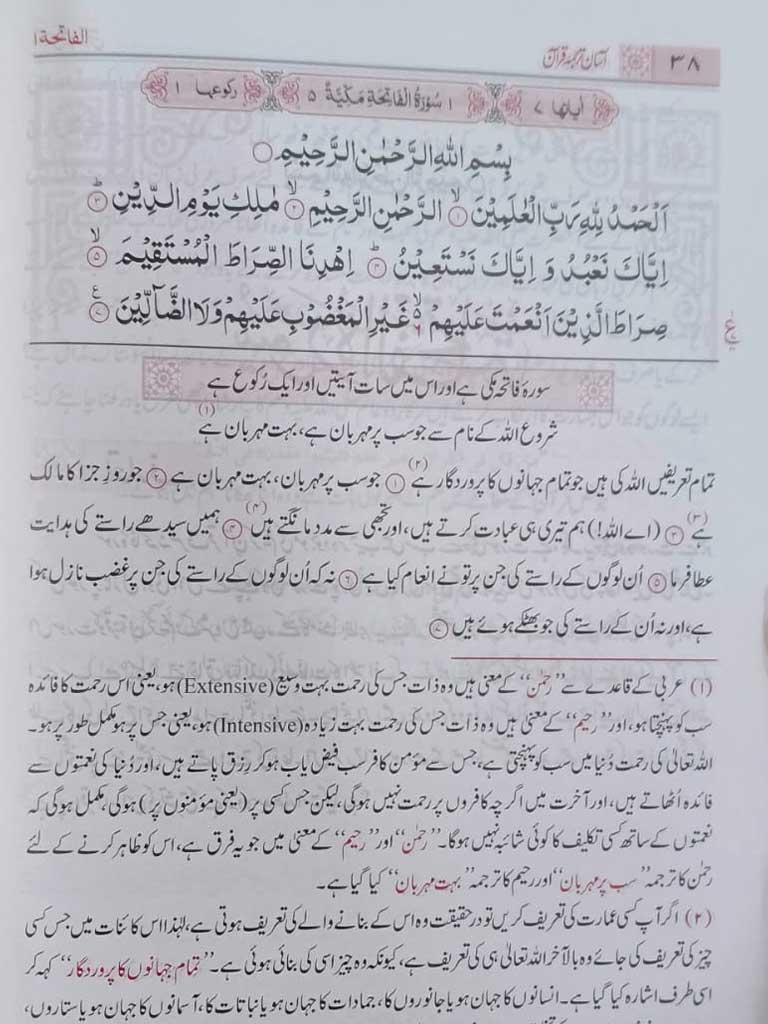 ۳۸ آسان ترجمۂ قرآن الفاتحة ۱
اٰیاتہا ۷ ۱ سُوْرَةُ الْفَاتِحَةِ مَكِّيَّةٌ ۵ رکوعہا ۱
بِسْمِ اللّٰهِ الرَّحْمٰنِ الرَّحِيْمِ ○
اَلْحَمْدُ لِلّٰهِ رَبِّ الْعٰلَمِيْنَ ۙ﴿۱﴾ الرَّحْمٰنِ الرَّحِيْمِ ۙ﴿۲﴾ مٰلِكِ يَوْمِ الدِّيْنِ ؕ﴿۳﴾
اِيَّاكَ نَعْبُدُ وَ اِيَّاكَ نَسْتَعِيْنُ ؕ﴿۴﴾ اِهْدِنَا الصِّرَاطَ الْمُسْتَقِيْمَ ۙ﴿۵﴾
صِرَاطَ الَّذِيْنَ اَنْعَمْتَ عَلَيْهِمْ ۙ۬۶ غَيْرِ الْمَغْضُوْبِ عَلَيْهِمْ وَلَا الضَّآلِّيْنَ ﴿۷﴾ ع
سورۂ فاتحہ مکی ہے اور اس میں سات آیتیں اور ایک رُکوع ہے
شروع اللہ کے نام سے جو سب پر مہربان ہے، بہت مہربان ہے (۱)
تمام تعریفیں اللہ کی ہیں جو تمام جہانوں کا پروردگار ہے (۲) ﴿۱﴾ جو سب پر مہربان، بہت مہربان ہے ﴿۲﴾ جو روزِ جزا کا مالک
ہے (۳) ﴿۳﴾ (اے اللہ!) ہم تیری ہی عبادت کرتے ہیں، اور تجھی سے مدد مانگتے ہیں (۴) ﴿۴﴾ ہمیں سیدھے راستے کی ہدایت
عطا فرما ﴿۵﴾ اُن لوگوں کے راستے کی جن پر تو نے انعام کیا ہے ﴿۶﴾ نہ کہ اُن لوگوں کے راستے کی جن پر غضب نازل ہوا
ہے، اور نہ اُن کے راستے کی جو بھٹکے ہوئے ہیں ﴿۷﴾
(۱) عربی کے قاعدے سے ”رحمٰن“ کے معنی ہیں وہ ذات جس کی رحمت بہت وسیع (Extensive) ہو، یعنی اس رحمت کا فائدہ
سب کو پہنچتا ہو، اور ”رحیم“ کے معنی ہیں وہ ذات جس کی رحمت بہت زیادہ (Intensive) ہو، یعنی جس پر ہو مکمل طور پر ہو۔
اللہ تعالیٰ کی رحمت دُنیا میں سب کو پہنچتی ہے، جس سے مؤمن کافر سب فیض یاب ہو کر رِزق پاتے ہیں، اور دُنیا کی نعمتوں سے
فائدہ اُٹھاتے ہیں، اور آخرت میں اگرچہ کافروں پر رحمت نہیں ہوگی، لیکن جس کسی پر (یعنی مؤمنوں پر) ہوگی، مکمل ہوگی کہ
نعمتوں کے ساتھ کسی تکلیف کا کوئی شائبہ نہیں ہوگا۔ ”رحمٰن“ اور ”رحیم“ کے معنی میں جو یہ فرق ہے، اس کو ظاہر کرنے کے لئے
رحمٰن کا ترجمہ ”سب پر مہربان“ اور رحیم کا ترجمہ ”بہت مہربان“ کیا گیا ہے۔
(۲) اگر آپ کسی عمارت کی تعریف کریں تو درحقیقت وہ اس کے بنانے والے کی تعریف ہوتی ہے، لہٰذا اس کائنات میں جس کسی
چیز کی تعریف کی جائے وہ بالآخر اللہ تعالیٰ ہی کی تعریف ہے، کیونکہ وہ چیز اسی کی بنائی ہوئی ہے۔ ”تمام جہانوں کا پروردگار“ کہہ کر
اسی طرف اشارہ کیا گیا ہے۔ انسانوں کا جہان ہو یا جانوروں کا، جمادات کا جہان ہو یا نباتات کا، آسمانوں کا جہان ہو یا ستاروں،